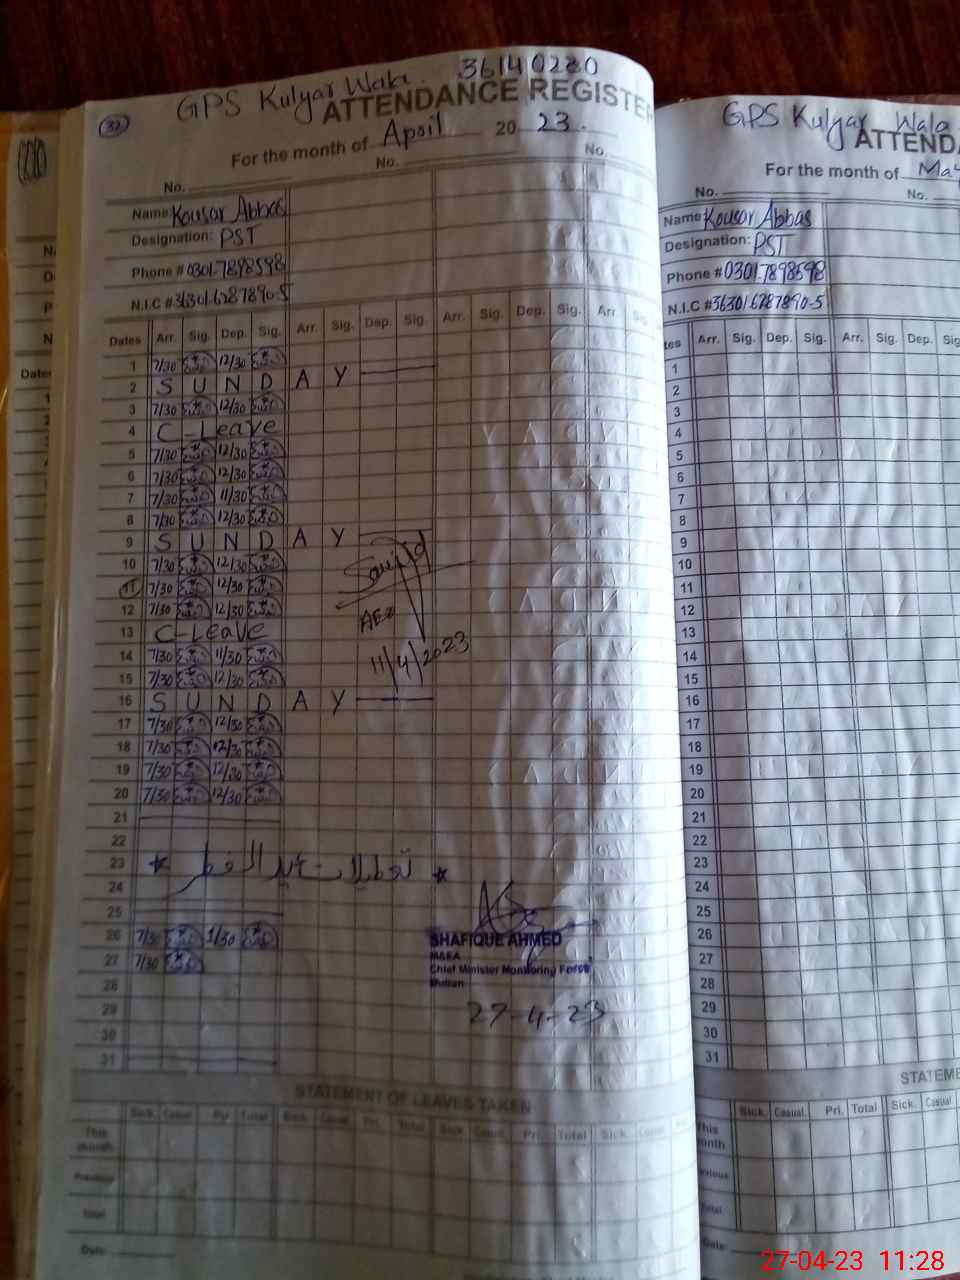 GPS Kulyar Wala 36140280
32
ATTENDANCE REGISTER
For the month of April 20 23.
No. No. No.
Name Kousar Abbas
Designation: PST
Phone # 0301-7898598
N.I.C # 36301-6287890-5
Dates Arr. Sig. Dep. Sig. Arr. Sig. Dep. Sig. Arr. Sig. Dep. Sig. Arr.
1 7/30 12/30
2 S U N D A Y
3 7/30 12/30
4 C-Leave
5 7/30 12/30
6 7/30 12/30
7 7/30 11/30
8 7/30 12/30
9 S U N D A Y
10 7/30 12/30
11 7/30 12/30
12 7/30 12/30
13 C-Leave
14 7/30 11/30
15 7/30 12/30
16 S U N D A Y
17 7/30 12/30
18 7/30 12/30
19 7/30 12/30
20 7/30 12/30
21
22
23 تعطیلات عید الفطر
24
25
26 7/30 1/30
27 7/30
28
29
30
31
AEO
11/4/2023
SHAFIQUE AHMED
M&EA
Chief Minister Monitoring Force
Multan
27-4-23
STATEMENT OF LEAVES TAKEN
Sick. Casual Pri. Total Sick. Casual Pri. Total Sick Casual Pri. Total Sick. Casual
This month
Previous
Total
Date:
GPS Kulyar Wala
ATTEND
For the month of May
No. No.
Name Kousar Abbas
Designation: PST
Phone # 0301-7898598
N.I.C # 36301-6287890-5
tes Arr. Sig. Dep. Sig. Arr. Sig. Dep. Sig
1
2
3
4
5
6
7
8
9
10
11
12
13
14
15
16
17
18
19
20
21
22
23
24
25
26
27
28
29
30
31
STATEME
Sick. Casual. Pri. Total Sick. Casual
This month
vious
Total
Date:
27-04-23 11:28